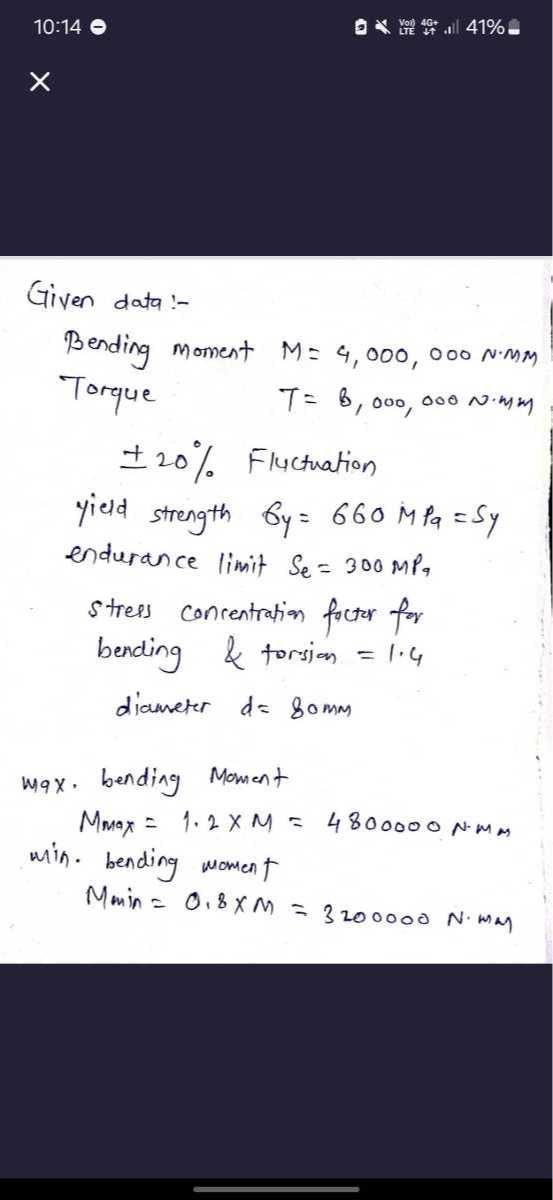 10:14
Vo) 4G+ 41%
LTE
Given data :-
Bending moment M = 4,000,000 N·MM
Torque T = 8,000,000 N·mm
± 20% Fluctuation
yield strength σy = 660 MPa = Sy
endurance limit Se = 300 MPa
stress concentration factor for
bending & torsion = 1.4
diameter d = 80mm
max. bending Moment
Mmax = 1.2 X M = 4800000 N·mm
min. bending moment
Mmin = 0.8 X M = 3200000 N·mm